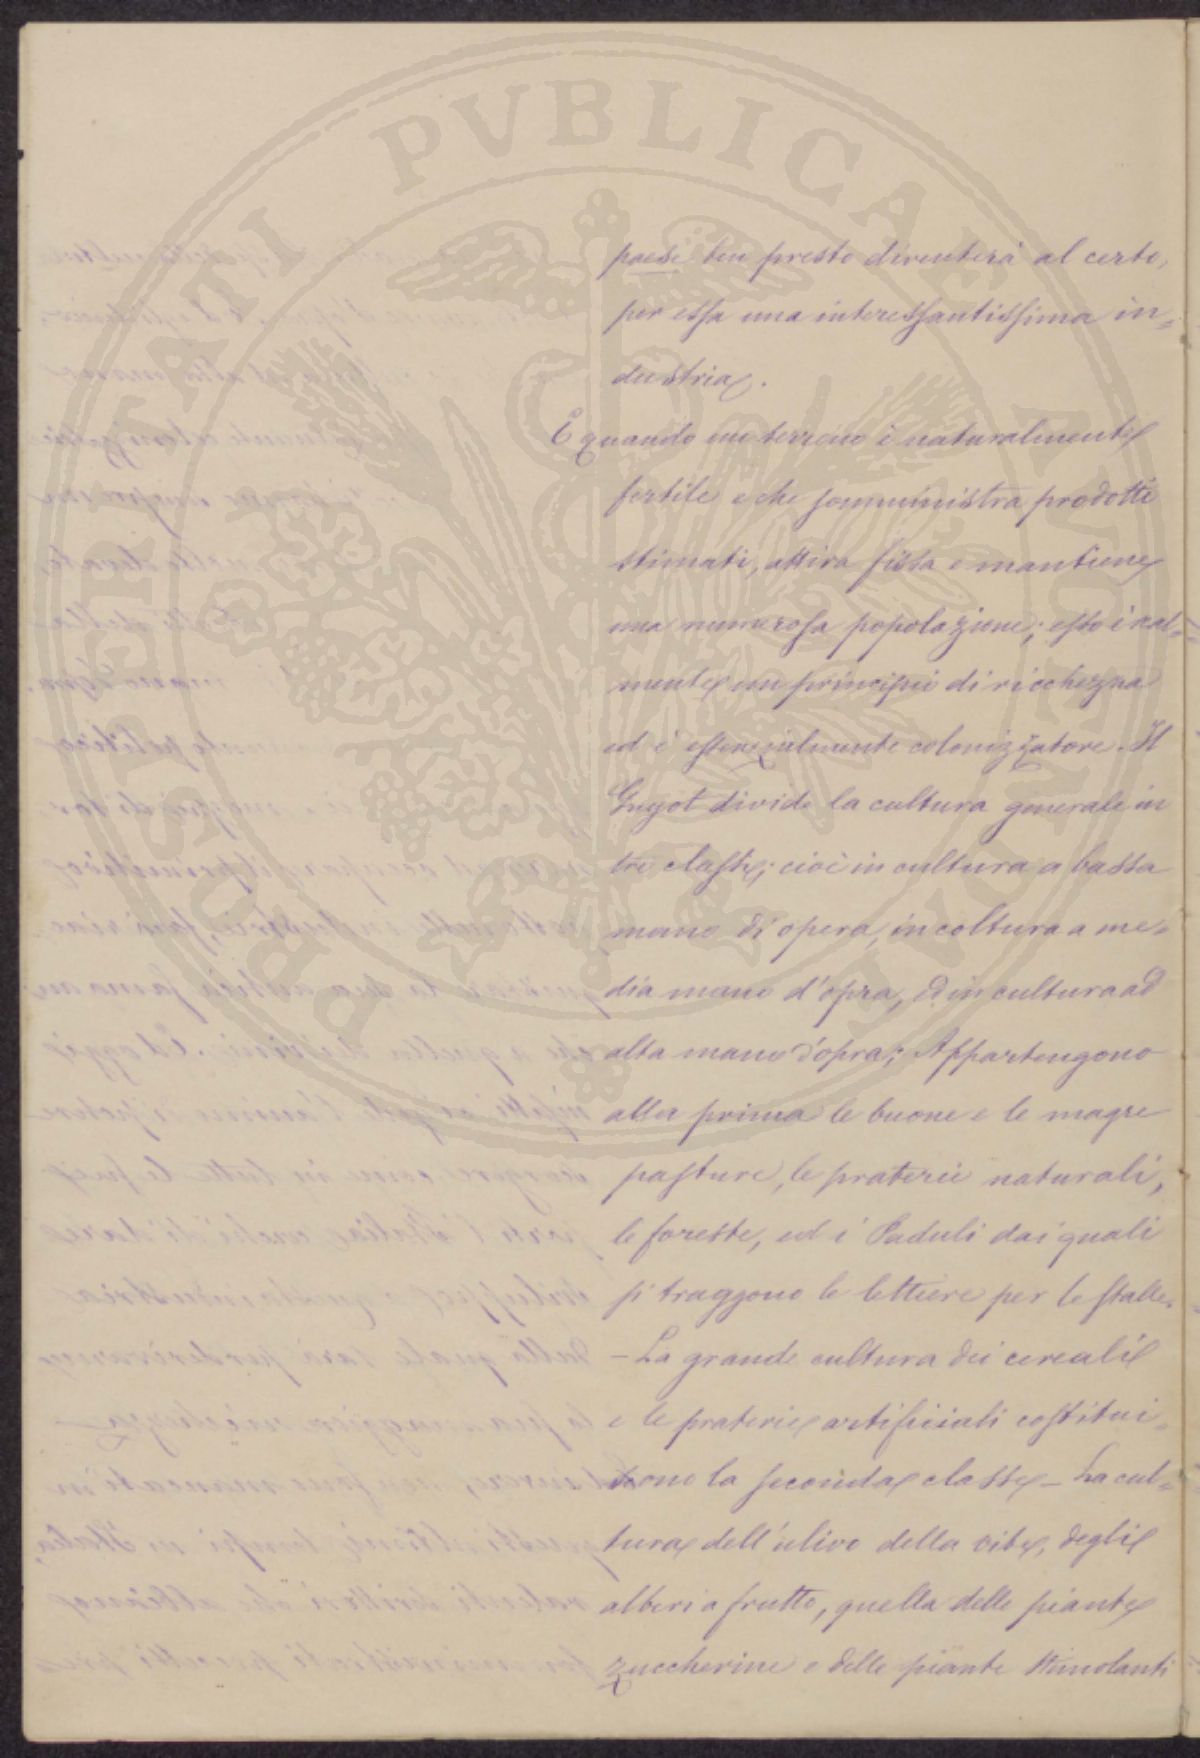 PROSPERITATI PVBLICAE AVGENDAE
paese ben presto diventerà al certo,
per essa una interessantissima in=
dustria.
E quando un terreno è naturalmente
fertile e che somministra prodotti
stimati, attira fissa e mantiene
una numerosa popolazione; esso è real=
mente un principii di ricchezza
ed è essenzialmente colonizzatore. Il
Guyot divide la cultura generale in
tre classe; cioè in cultura a bassa
mano di opera, in coltura a me=
dia mano d'opra, ed in cultura ad
alta mano d'opra; Appartengono
alla prima le buone e le magre
pasture, le praterie naturali,
le foreste, ed i Paduli dai quali
si traggono le lettiere per le stalle.
– La grande cultura dei cereali
e le praterie artificiali costitui=
rono la seconda classe – La cul=
tura dell'ulivo della vite, degli
alberi a frutto, quella delle piante
zuccherine e delle piante stimolanti